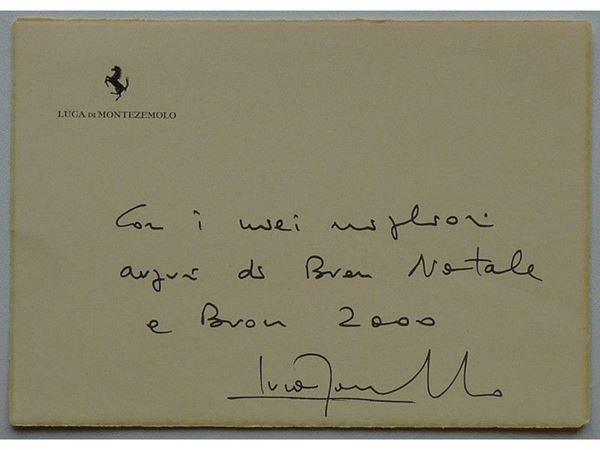 LUCA DI MONTEZEMOLO
Con i miei migliori
auguri di Buon Natale
e Buon 2000